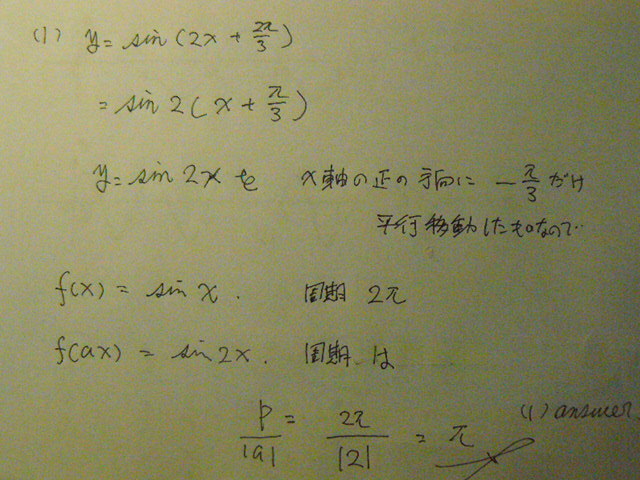 (1) y = sin(2x + 2π/3)
= sin 2(x + π/3)
y = sin 2x を x軸の正の方向に -π/3 だけ
平行移動したものなので…
f(x) = sin x. 周期 2π
f(ax) = sin 2x. 周期は
p/|a| = 2π/|2| = π (1) answer